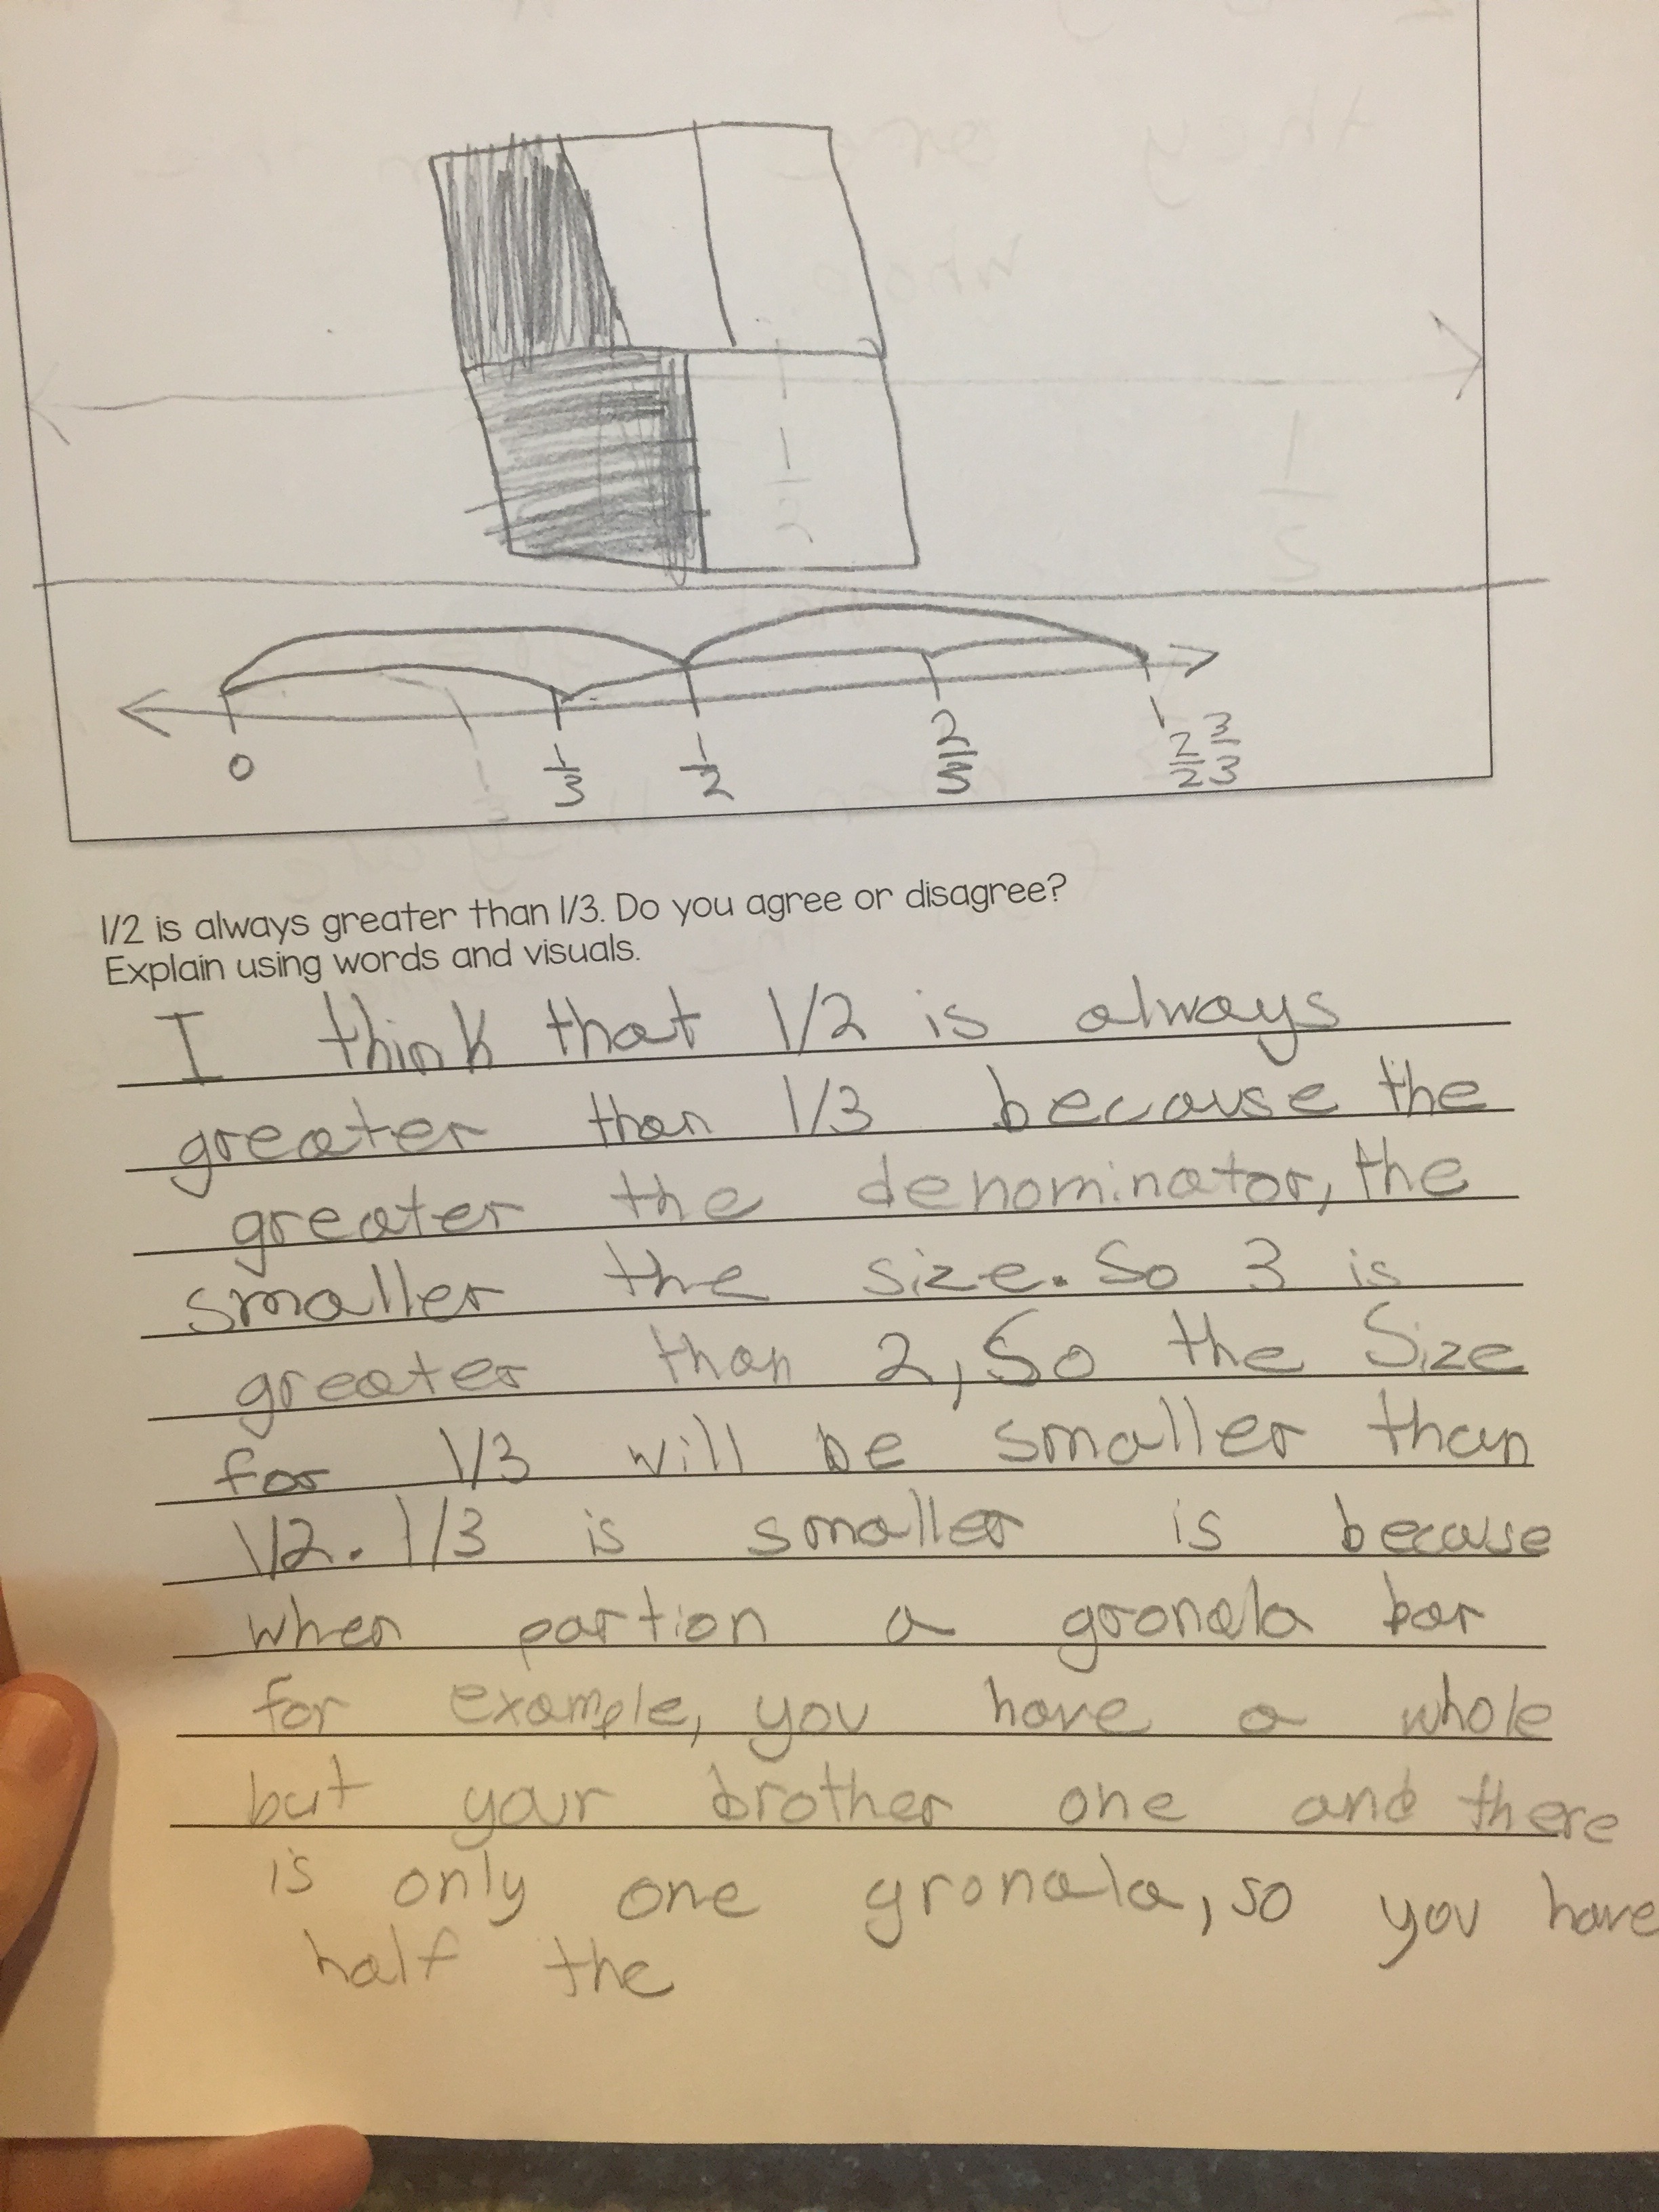 0
1/3
1/2
2/3
2/2 3/3
1/2 is always greater than 1/3. Do you agree or disagree?
Explain using words and visuals.
I think that 1/2 is always
greater than 1/3 because the
greater the denominator, the
smaller the size. So 3 is
greater than 2, So the Size
for 1/3 will be smaller than
1/2. 1/3 is smaller is because
when partion a gronala bar
for example, you have a whole
but your brother one and there
is only one gronala, so you have
half the